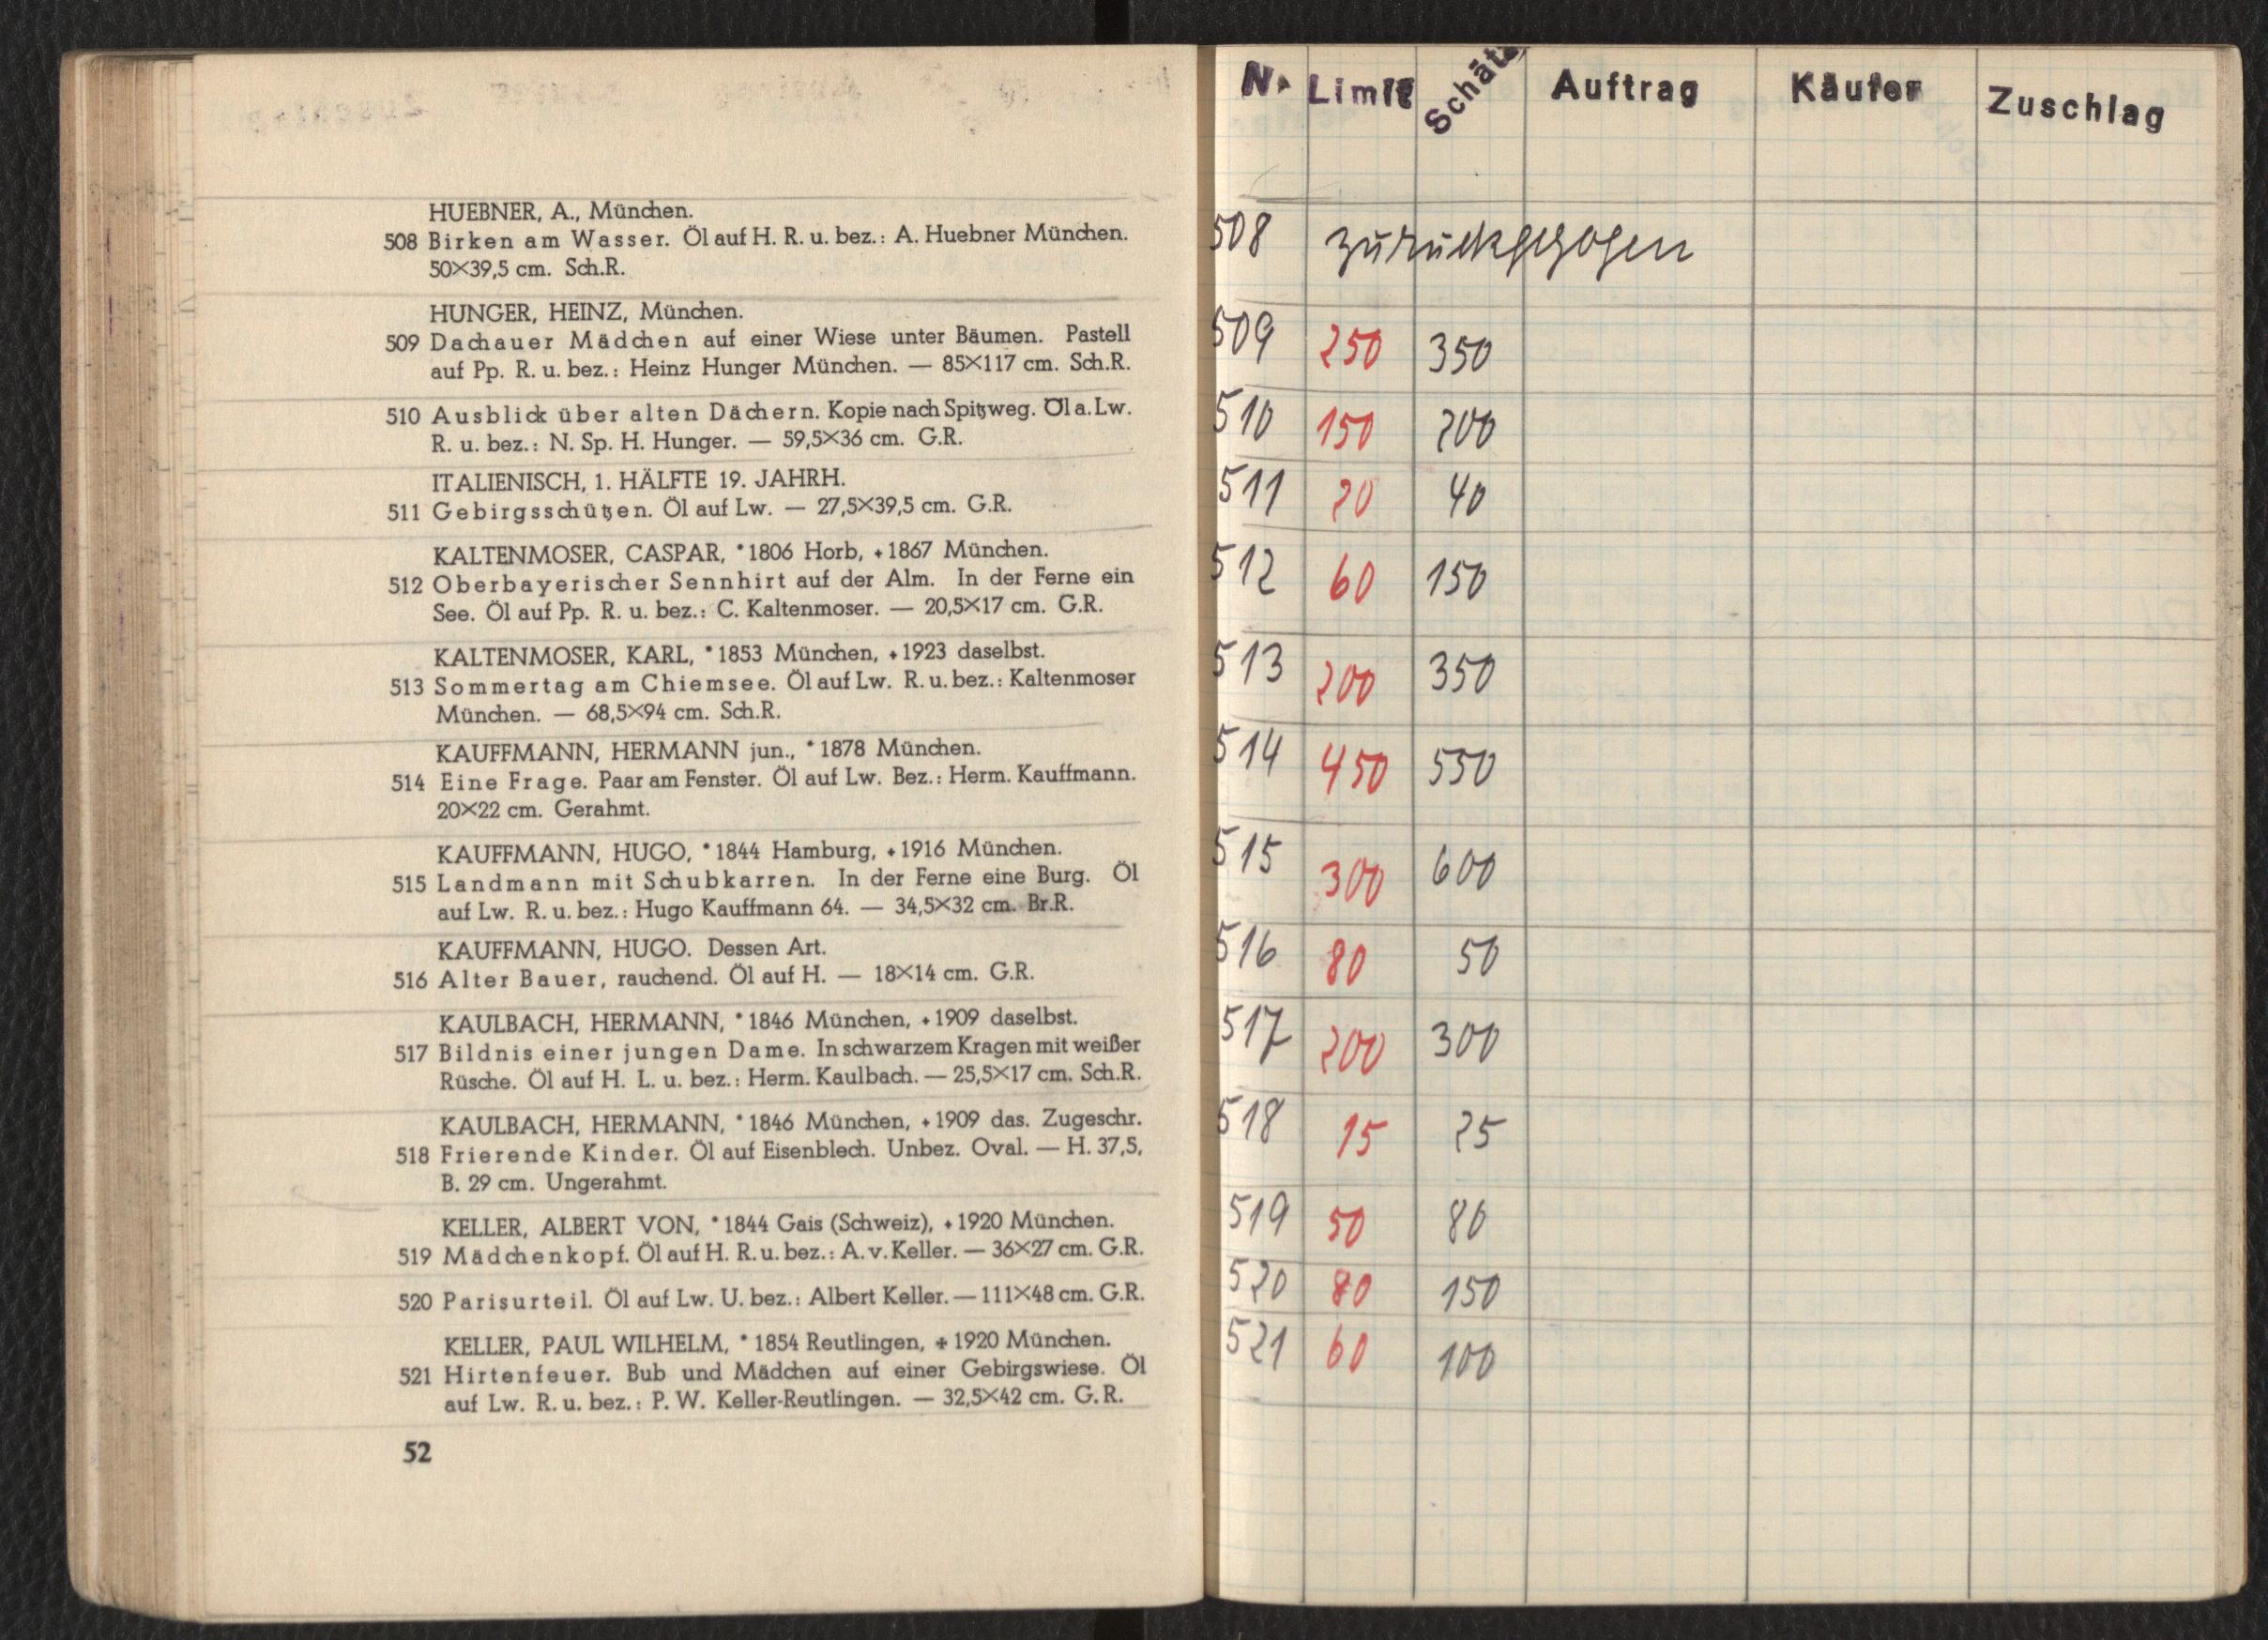 HUEBNER, A., München.
508 Birken am Wasser. Öl auf H. R. u. bez.: A. Huebner München.
50×39,5 cm. Sch.R.
HUNGER, HEINZ, München.
509 Dachauer Mädchen auf einer Wiese unter Bäumen. Pastell
auf Pp. R. u. bez.: Heinz Hunger München. — 85×117 cm. Sch.R.
510 Ausblick über alten Dächern. Kopie nach Spitzweg. Öl a. Lw.
R. u. bez.: N. Sp. H. Hunger. — 59,5×36 cm. G.R.
ITALIENISCH, 1. HÄLFTE 19. JAHRH.
511 Gebirgsschützen. Öl auf Lw. — 27,5×39,5 cm. G.R.
KALTENMOSER, CASPAR, *1806 Horb, +1867 München.
512 Oberbayerischer Sennhirt auf der Alm. In der Ferne ein
See. Öl auf Pp. R. u. bez.: C. Kaltenmoser. — 20,5×17 cm. G.R.
KALTENMOSER, KARL, *1853 München, +1923 daselbst.
513 Sommertag am Chiemsee. Öl auf Lw. R. u. bez.: Kaltenmoser
München. — 68,5×94 cm. Sch.R.
KAUFFMANN, HERMANN jun., *1878 München.
514 Eine Frage. Paar am Fenster. Öl auf Lw. Bez.: Herm. Kauffmann.
20×22 cm. Gerahmt.
KAUFFMANN, HUGO, *1844 Hamburg, +1916 München.
515 Landmann mit Schubkarren. In der Ferne eine Burg. Öl
auf Lw. R. u. bez.: Hugo Kauffmann 64. — 34,5×32 cm. Br.R.
KAUFFMANN, HUGO. Dessen Art.
516 Alter Bauer, rauchend. Öl auf H. — 18×14 cm. G.R.
KAULBACH, HERMANN, *1846 München, +1909 daselbst.
517 Bildnis einer jungen Dame. In schwarzem Kragen mit weißer
Rüsche. Öl auf H. L. u. bez.: Herm. Kaulbach. — 25,5×17 cm. Sch.R.
KAULBACH, HERMANN, *1846 München, +1909 das. Zugeschr.
518 Frierende Kinder. Öl auf Eisenblech. Unbez. Oval. — H. 37,5,
B. 29 cm. Ungerahmt.
KELLER, ALBERT VON, *1844 Gais (Schweiz), +1920 München.
519 Mädchenkopf. Öl auf H. R. u. bez.: A. v. Keller. — 36×27 cm. G.R.
520 Parisurteil. Öl auf Lw. U. bez.: Albert Keller. — 111×48 cm. G.R.
KELLER, PAUL WILHELM, *1854 Reutlingen, +1920 München.
521 Hirtenfeuer. Bub und Mädchen auf einer Gebirgswiese. Öl
auf Lw. R. u. bez.: P. W. Keller-Reutlingen. — 32,5×42 cm. G.R.
52
Nr Limit Schätz Auftrag Käufer Zuschlag
508 zurückgezogen
509 250 350
510 150 200
511 20 40
512 60 150
513 200 350
514 450 550
515 300 600
516 80 50
517 200 300
518 15 25
519 50 80
520 80 150
521 60 100